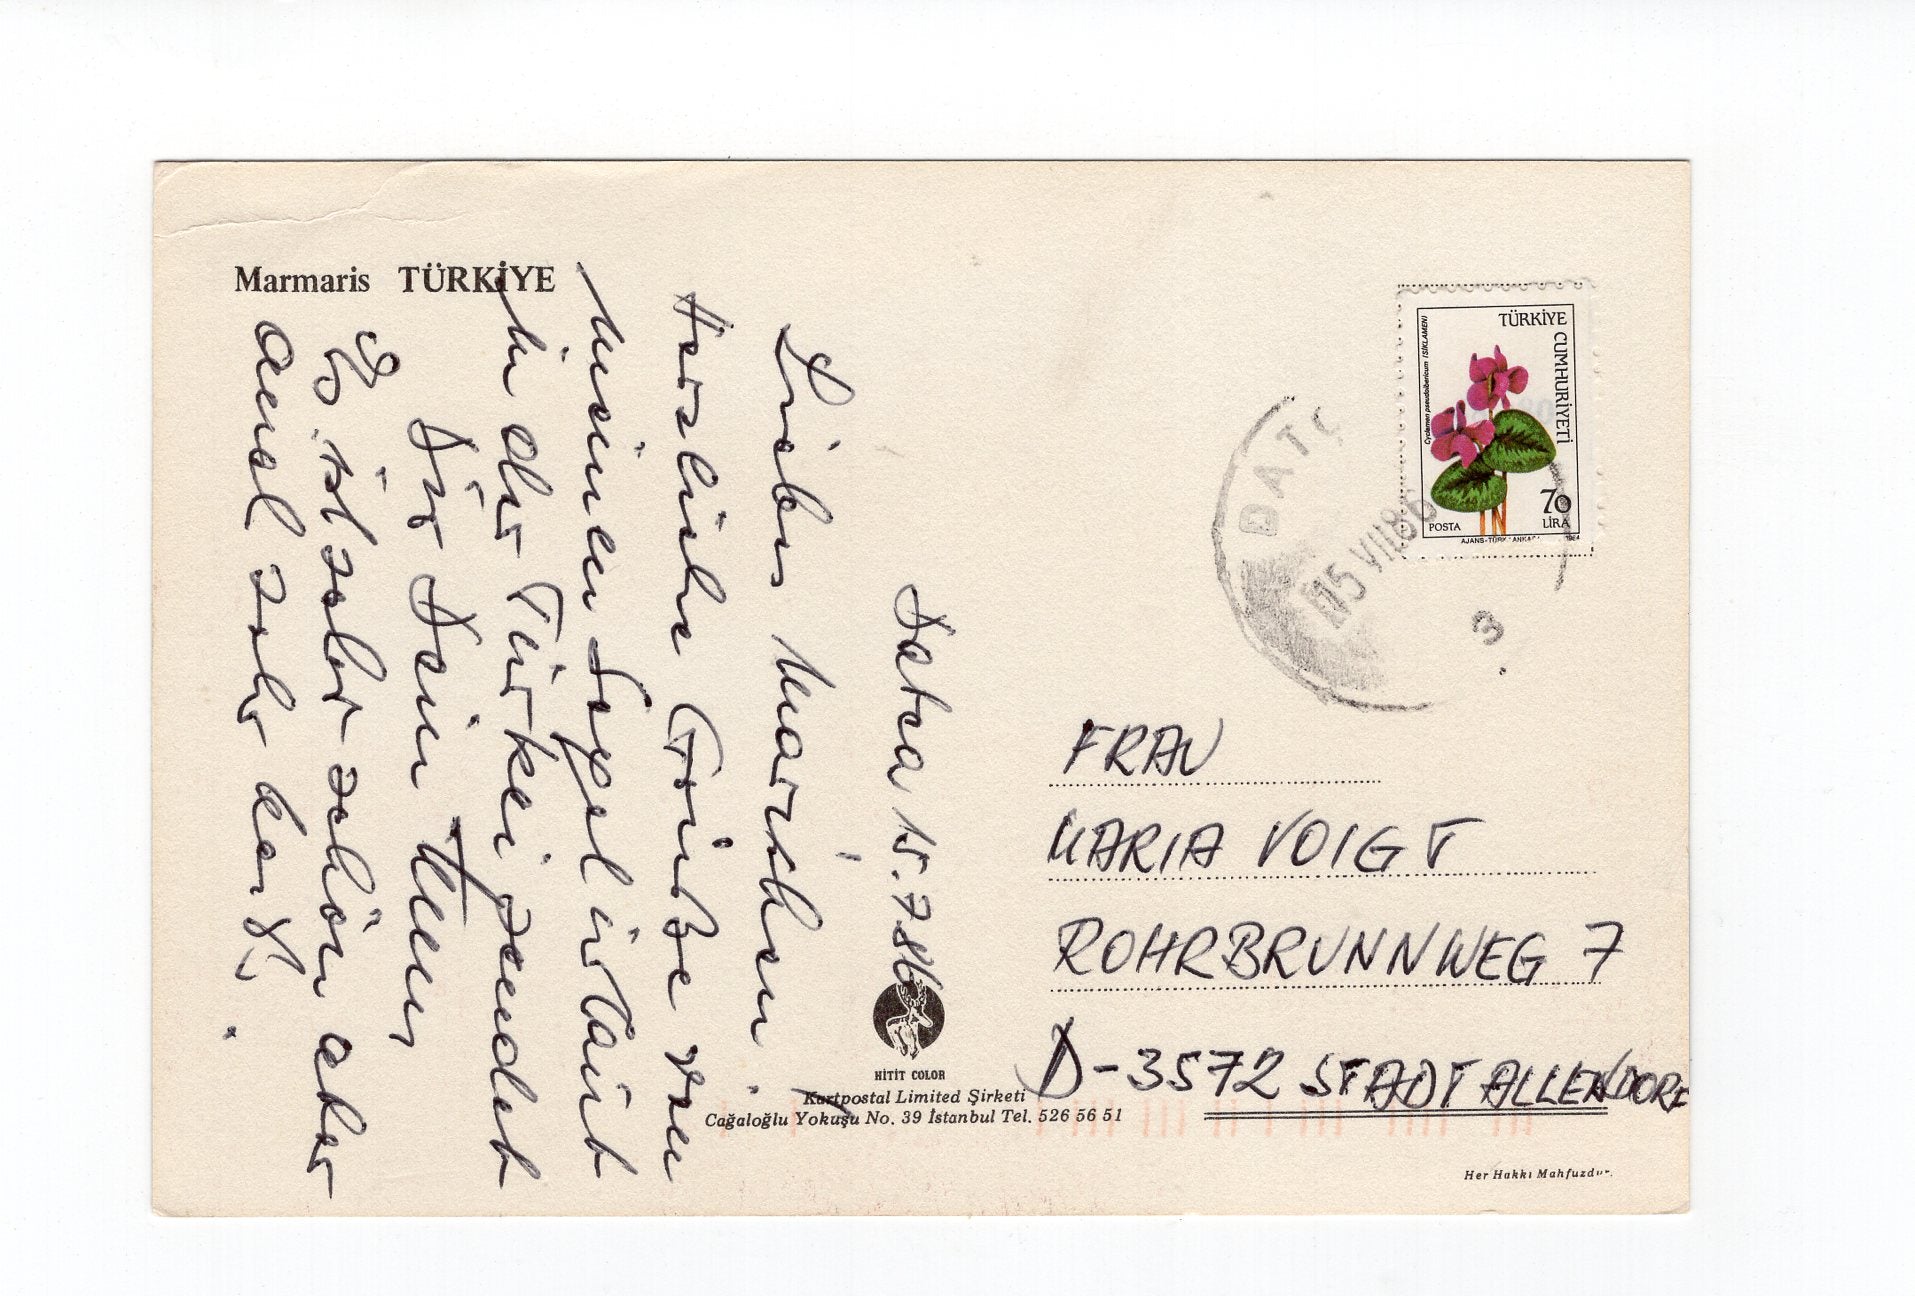 Marmaris TÜRKİYE
Datca 15.7.86
Liebes Mariechen!
Herzliche Grüße von
meinen Segelurlaub
in der Türkei sendet
Dir Dein
Es ist sehr schön aber
auch sehr heiß.
TÜRKİYE CUMHURİYETİ
Cyclamen pseudoibericum (SIKLAMEN)
70
LİRA
POSTA
AJANS-TÜRK
DATÇ
15 VII 86
3
FRAU
MARIA VOIGT
ROHRBRUNNWEG 7
D-3572 STADTALLENDORF
HİTİT COLOR
Kartpostal Limited Şirketi
Cağaloğlu Yokuşu No. 39 İstanbul Tel. 526 56 51
Her Hakkı Mahfuzdur.